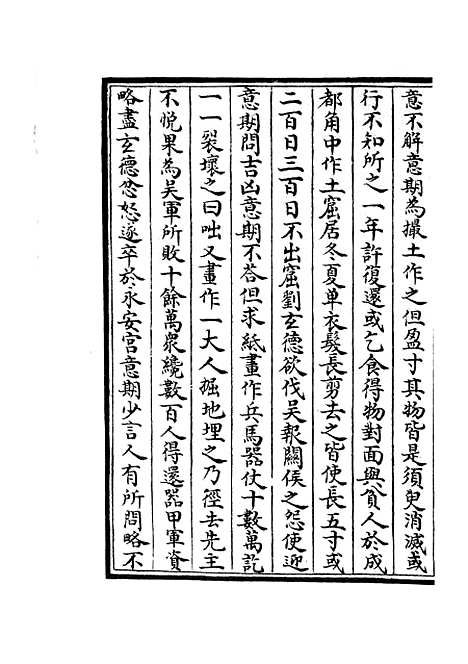 意不解意期為撮土作之但盈寸其物皆是須臾消滅或
行不知所之一年許復還或乞食得物對面與貧人於成
都角中作土窟居冬夏单衣髮長剪去之皆使長五寸或
二百日三百日不出窟劉玄德欲伐吴報關侯之怨使迎
意期問吉凶意期不答但求紙畫作兵馬器仗十數萬訖
一一裂壞之曰咄又畫作一大人掘地埋之乃徑去先主
不悦果為吴軍所敗十餘萬衆纔數百人得還器甲軍資
略盡玄德忿怒遂卒於永安宫意期少言人有所問略不